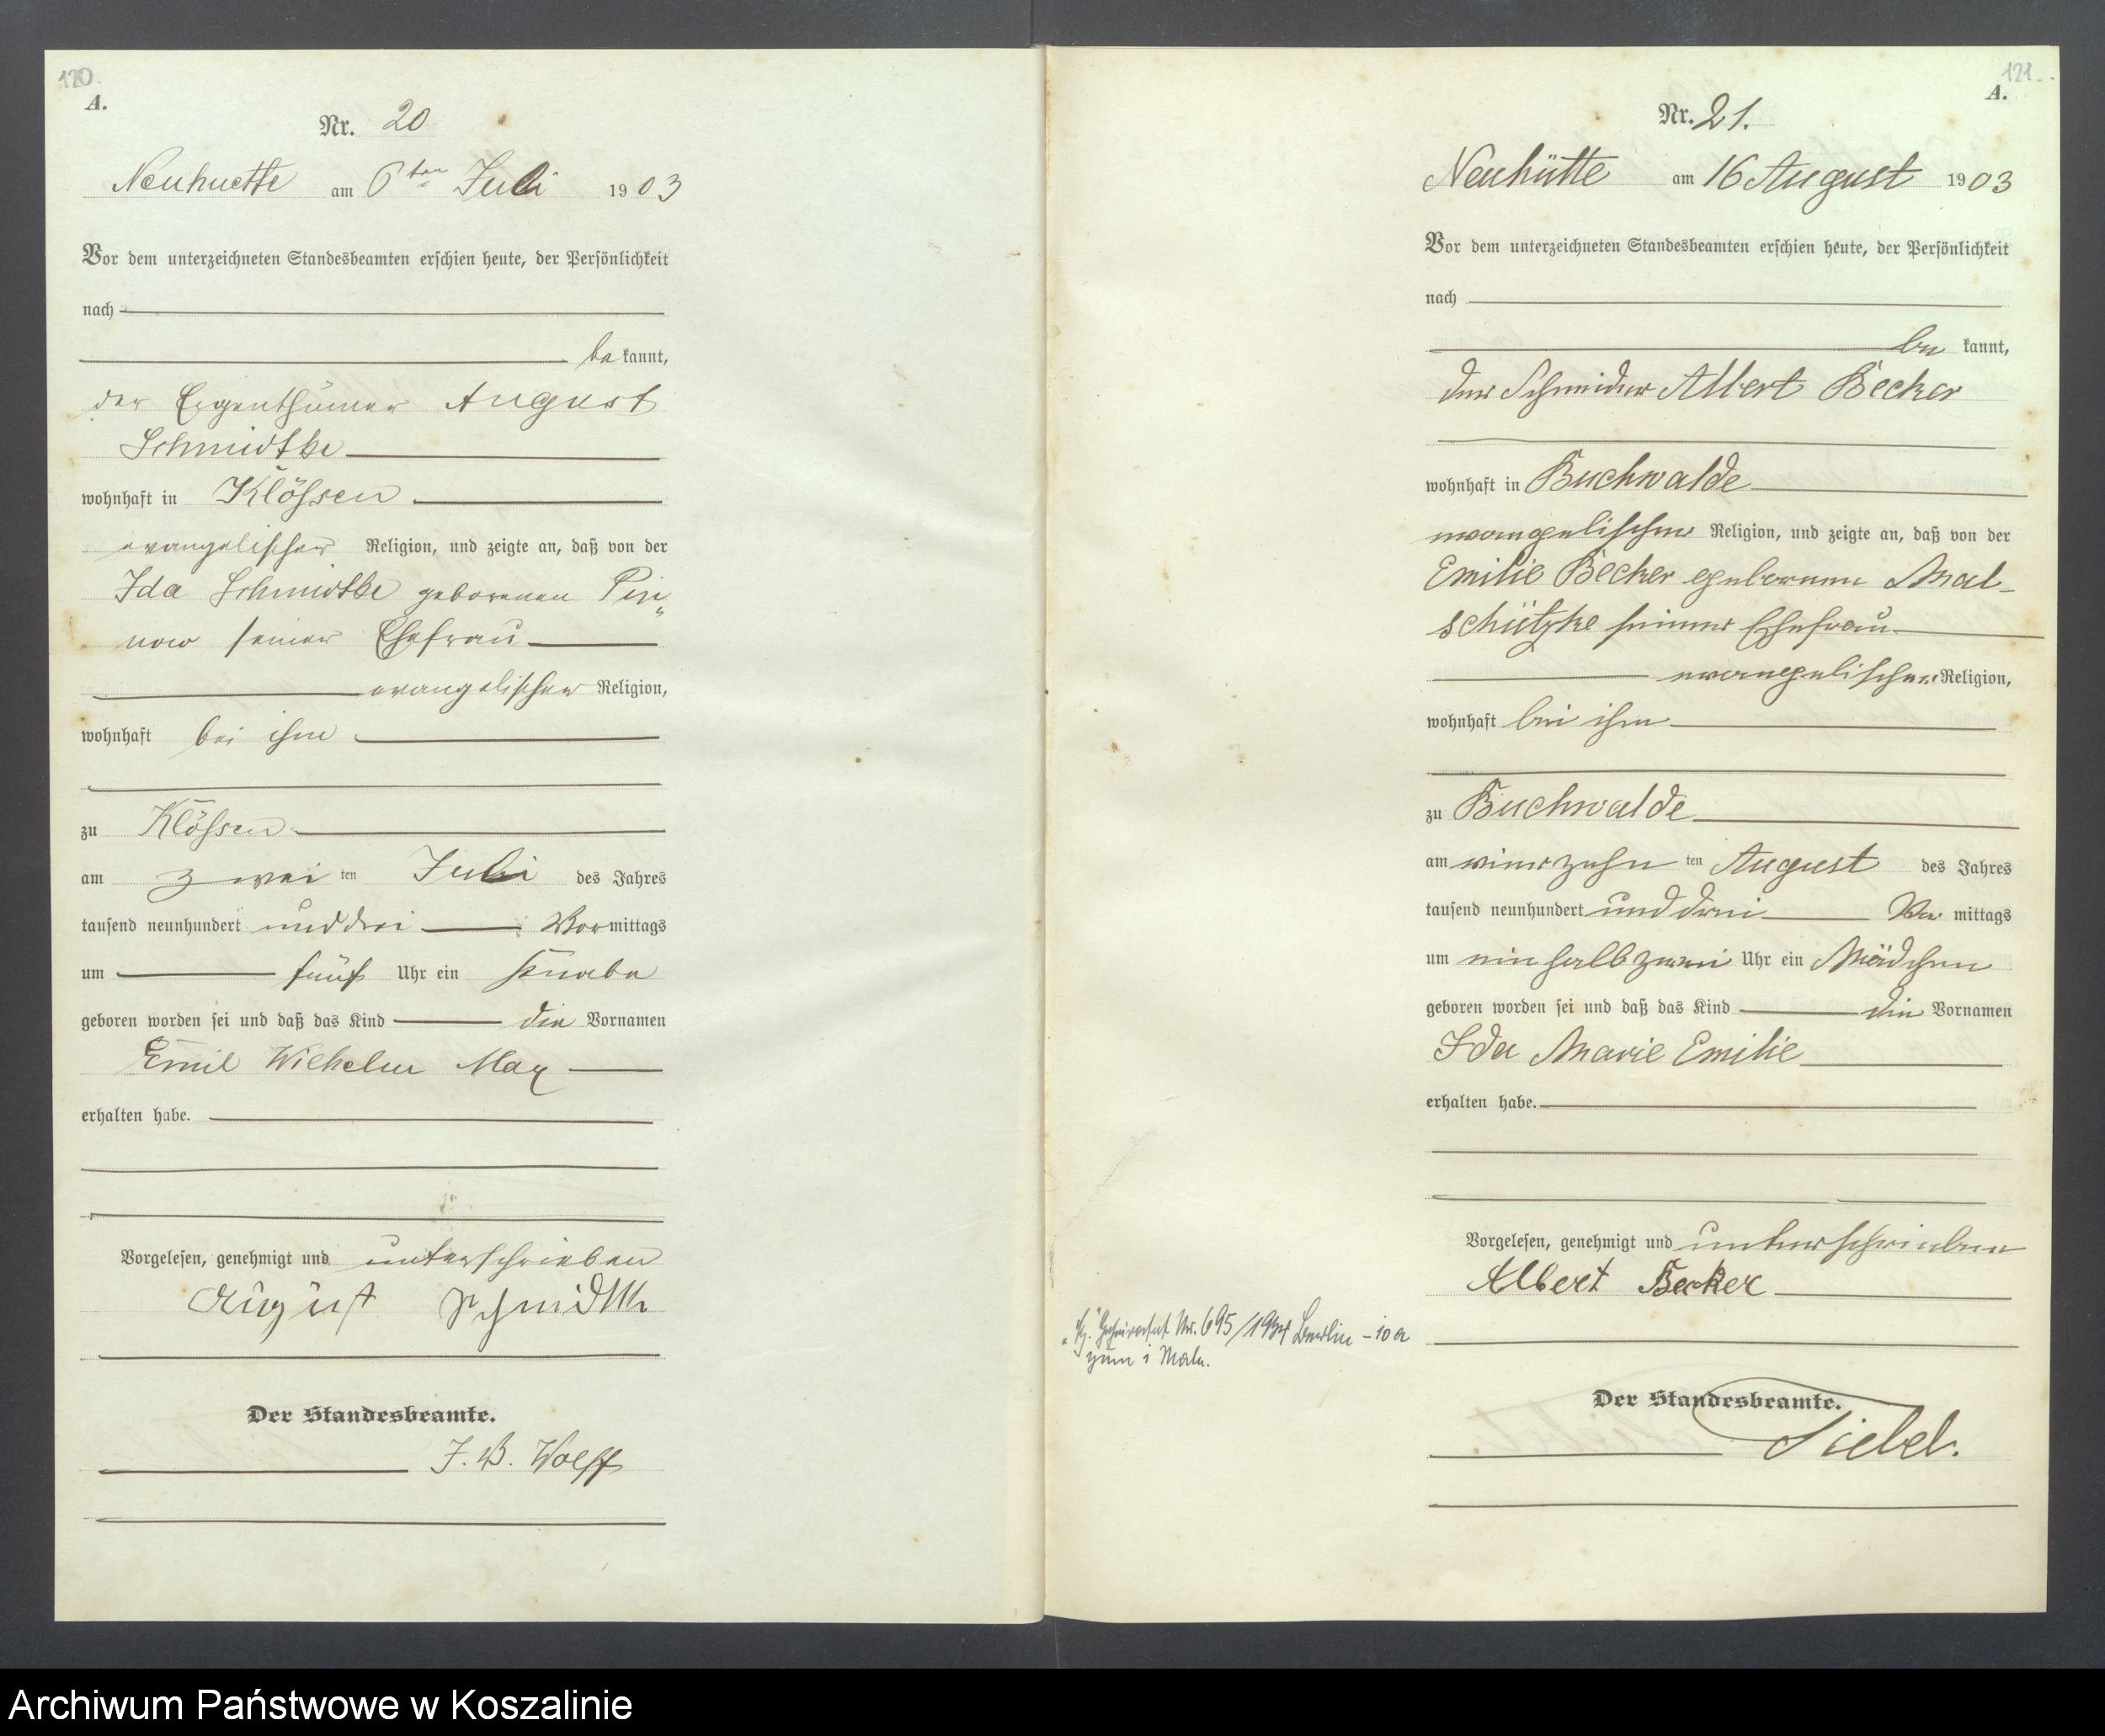 120.
A.
Nr. 20
Neuhuette am 6ten Juli 1903
Vor dem unterzeichneten Standesbeamten erschien heute, der Persönlichkeit
nach
be kannt,
der Eigenthümer August
Schmidtke
wohnhaft in Klößen
evangelischer Religion, und zeigte an, daß von der
Ida Schmidtke geborenen Pin„
now seiner Ehefrau
evangelischer Religion,
wohnhaft bei ihm
zu Klößen
am zwei ten Juli des Jahres
tausend neunhundert und drei Vor mittags
um fünf Uhr ein Knabe
geboren worden sei und daß das Kind die Vornamen
Emil Wilhelm Max
erhalten habe.
Vorgelesen, genehmigt und unterschrieben
August Schmidtke
Der Standesbeamte.
J. B. Wolff
121.
A.
Nr. 21.
Neuhütte am 16 August 1903
Vor dem unterzeichneten Standesbeamten erschien heute, der Persönlichkeit
nach
be kannt,
der Schneider Albert Becker
wohnhaft in Buchwalde
evangelischer Religion, und zeigte an, daß von der
Emilie Becker geborenen Mal-
schützke seiner Ehefrau
evangelischer Religion,
wohnhaft bei ihm
zu Buchwalde
am vierzehn ten August des Jahres
tausend neunhundert und drei Vor mittags
um ein halb zwei Uhr ein Mädchen
geboren worden sei und daß das Kind die Vornamen
Ida Marie Emilie
erhalten habe.
Vorgelesen, genehmigt und unterschrieben
Albert Becker
Nr. 695/1934 Berlin - 10a
zum 1 Male.
Der Standesbeamte.
Siebel.
Archiwum Państwowe w Koszalinie